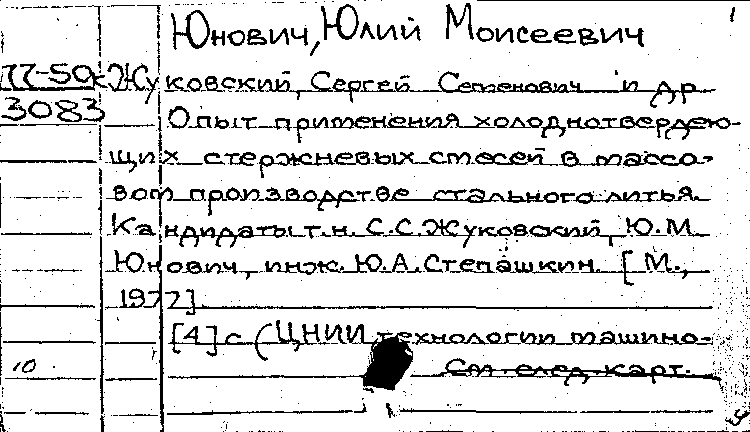 1
Юнович, Юлий Моисеевич
77-50к Жуковский, Сергей Семенович и др
3083 Опыт применения холоднотвердею-
щих стержневых смесей в массо-
вом производстве стального литья.
Кандидаты т.н. С.С.Жуковский, Ю.М.
Юнович, инж. Ю.А.Степашкин. [М.,
1977].
[4] с (ЦНИИ технологии машино-
10 См след карт.